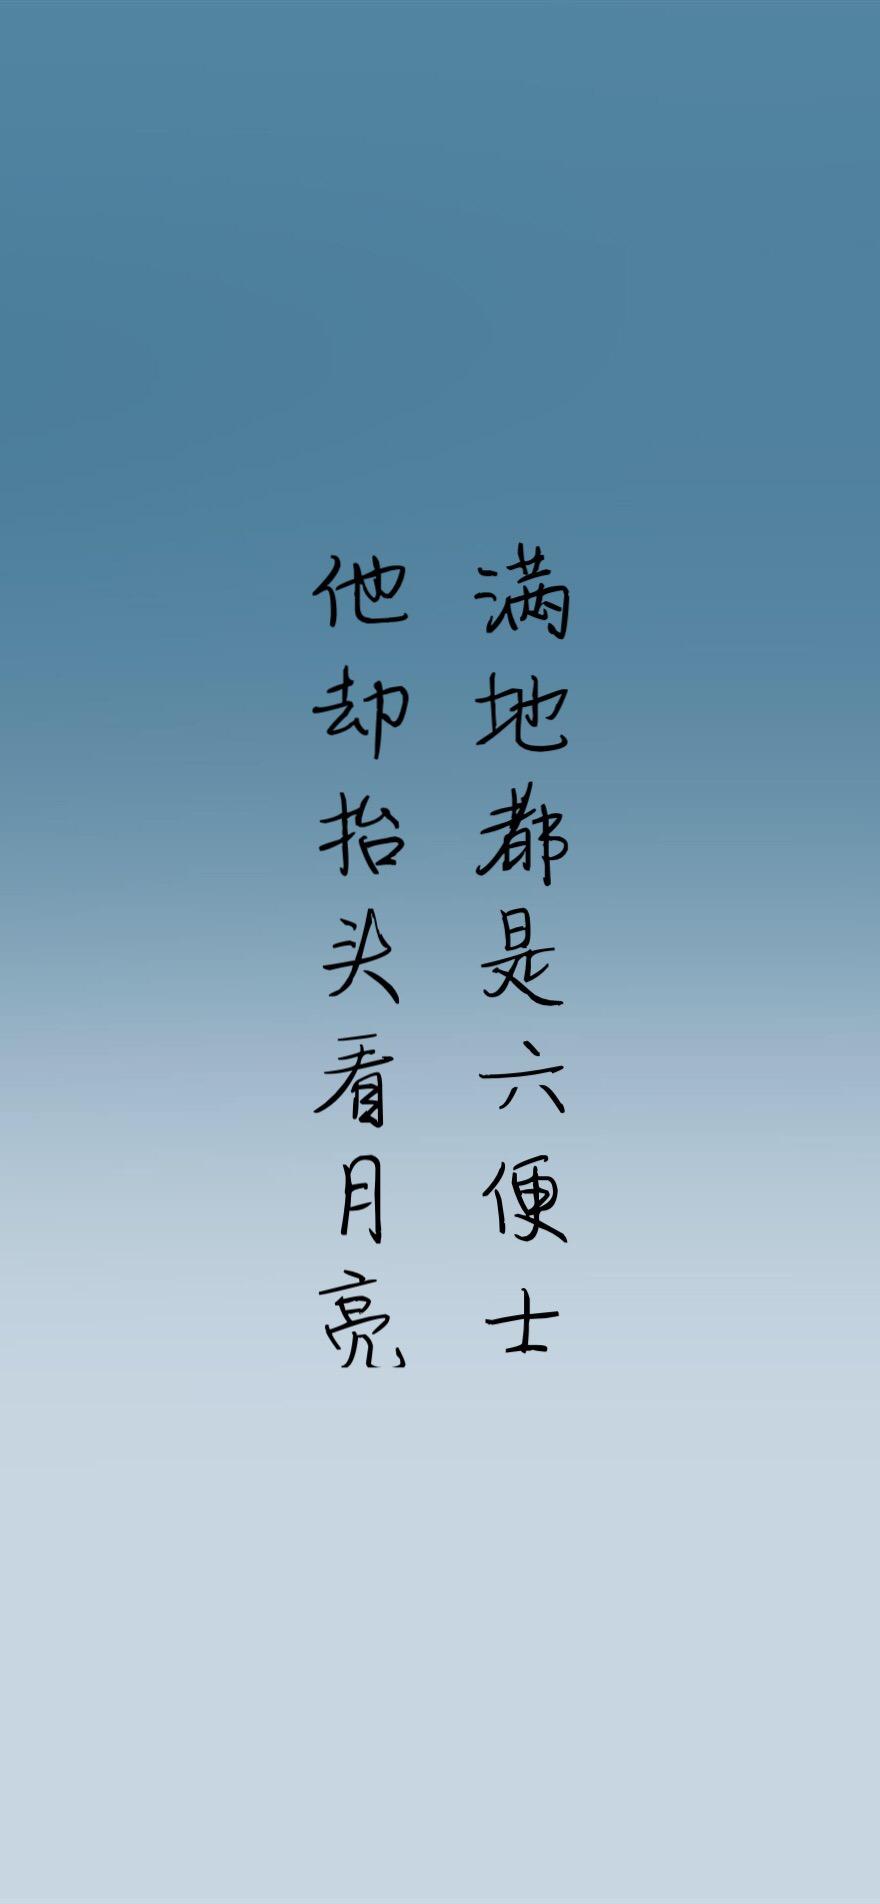 满地都是六便士
他却抬头看月亮